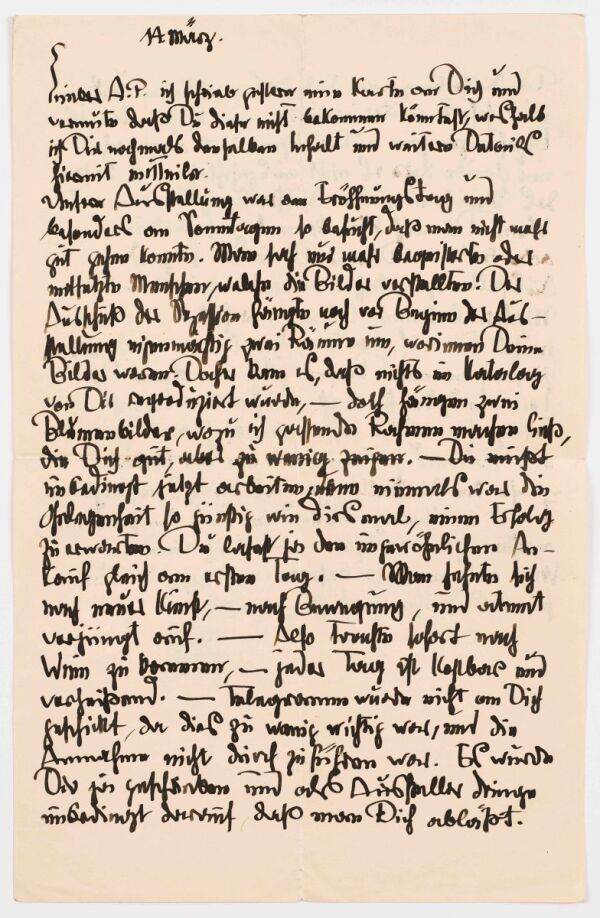 14 März.
Lieber A.P. ich schrieb gestern eine Karte an Dich und
vermute daß Du diese nicht bekommen könntest, weshalb
ich Dir nochmals denselben Inhalt und weitere Details
hiermit mitteile.
Unsere Ausstellung war am Eröffnungstag und
besonders am so besucht, daß man nicht mehr
gut gehen konnte. Man sah nur mehr begeisterte oder
entsetzte Menschen, welche die Bilder verstellten. Der
Ausschuß der Sezession hängte noch vor Beginn der Aus-
stellung eigenmächtig zwei Räume um, worinnen Deine
Bilder waren. Daher kam es, daß nichts im Katalog
von Dir reproduziert wurde, — doch hängen zwei
Blumenbilder, wozu ich passende Rahmen machen ließ,
die Dich gut, aber zu wenig zeigen. — Du mußt
unbedingt jetzt arbeiten, denn niemals war die
Gelegenheit so günstig wie diesmal, einen Erfolg
zu erwarten. Du lasest ja den ungewöhnlichen An-
kauf gleich am ersten Tag. — Man sehnte sich
nach neuer Kunst, — nach Bewegung, und atmet
verjüngt auf. — Also trachte sofort nach
Wien zu kommen, — jeder Tag ist kostbar und
verheißend. — Telegramm wurde nicht an Dich
geschickt, da dies zu wenig wichtig war, und die
Annahme nicht durch zu führen war. Es wurde
Dir ja und als Aussteller dringe
unbedingt darauf, daß man Dich ablößt.